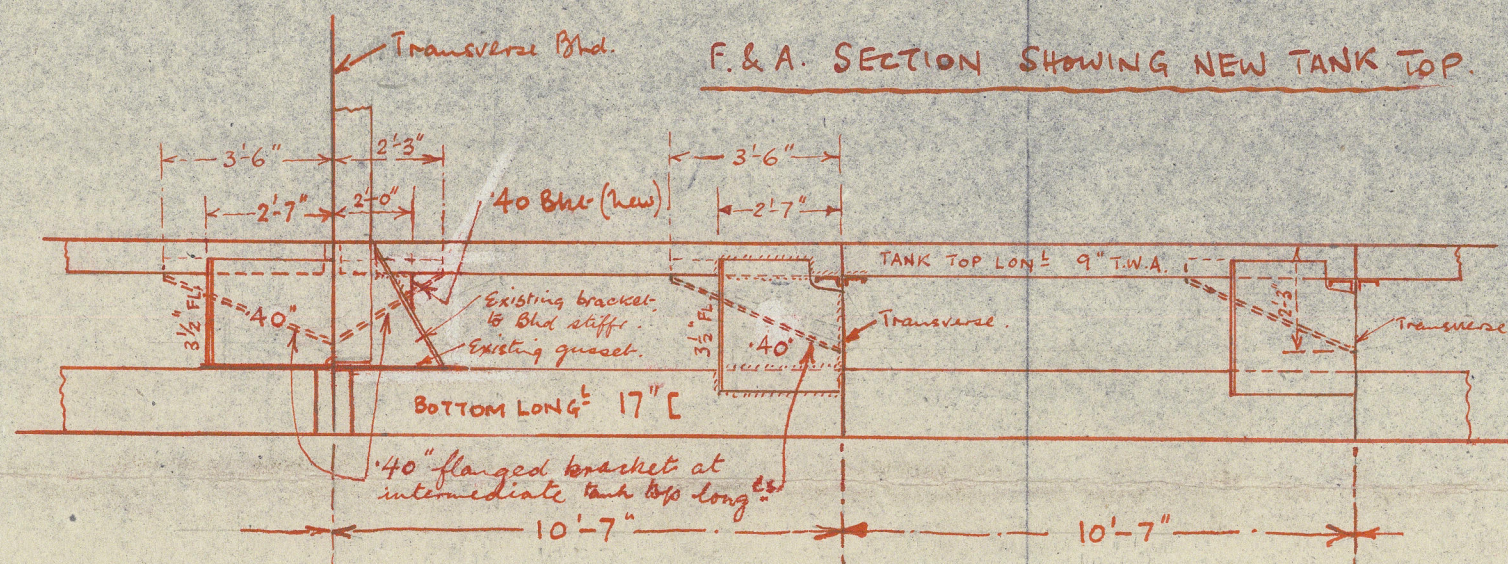 Transverse Bhd.
F. & A. SECTION SHOWING NEW TANK TOP.
3'-6"
2'-3"
3'-6"
2'-7"
2'-0"
·40 Bkt (new)
2'-7"
TANK TOP LONL 9" T.W.A.
3½" FL
·40"
Existing bracket
to Bhd stiffr.
Existing gusset.
3½" FL
·40"
Transverse.
2'-3"
Transverse
BOTTOM LONGL 17" [
·40" flanged bracket at
intermediate tank top longls
10'-7"
10'-7"